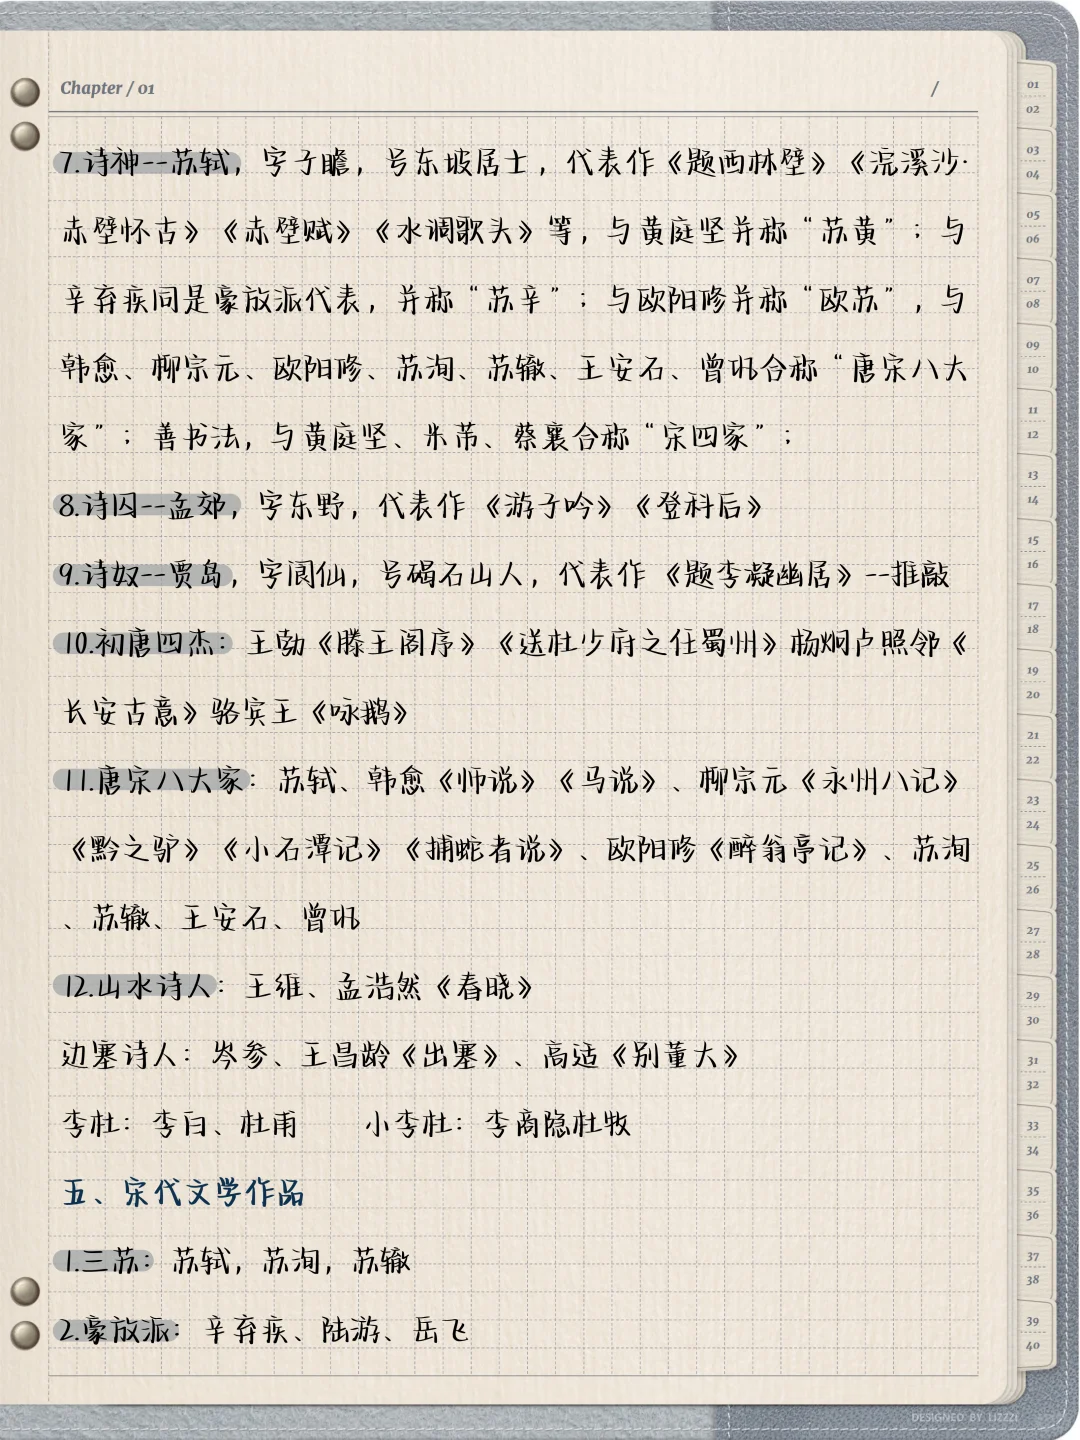 Chapter / 01
/
7.诗神--苏轼，字子瞻，号东坡居士，代表作《题西林壁》《浣溪沙·
赤壁怀古》《赤壁赋》《水调歌头》等，与黄庭坚并称“苏黄”；与
辛弃疾同是豪放派代表，并称“苏辛”；与欧阳修并称“欧苏”，与
韩愈、柳宗元、欧阳修、苏洵、苏辙、王安石、曾巩合称“唐宋八大
家”；善书法，与黄庭坚、米芾、蔡襄合称“宋四家”；
8.诗囚--孟郊，字东野，代表作《游子吟》《登科后》
9.诗奴--贾岛，字阆仙，号碣石山人，代表作《题李凝幽居》--推敲
10.初唐四杰：王勃《滕王阁序》《送杜少府之任蜀州》杨炯卢照邻《
长安古意》骆宾王《咏鹅》
11.唐宋八大家：苏轼、韩愈《师说》《马说》、柳宗元《永州八记》
《黔之驴》《小石潭记》《捕蛇者说》、欧阳修《醉翁亭记》、苏洵
、苏辙、王安石、曾巩
12.山水诗人：王维、孟浩然《春晓》
边塞诗人：岑参、王昌龄《出塞》、高适《别董大》
李杜：李白、杜甫 小李杜：李商隐杜牧
五、宋代文学作品
1.三苏：苏轼，苏洵，苏辙
2.豪放派：辛弃疾、陆游、岳飞
01
02
03
04
05
06
07
08
09
10
11
12
13
14
15
16
17
18
19
20
21
22
23
24
25
26
27
28
29
30
31
32
33
34
35
36
37
38
39
40
DESIGNED BY LIZZZI